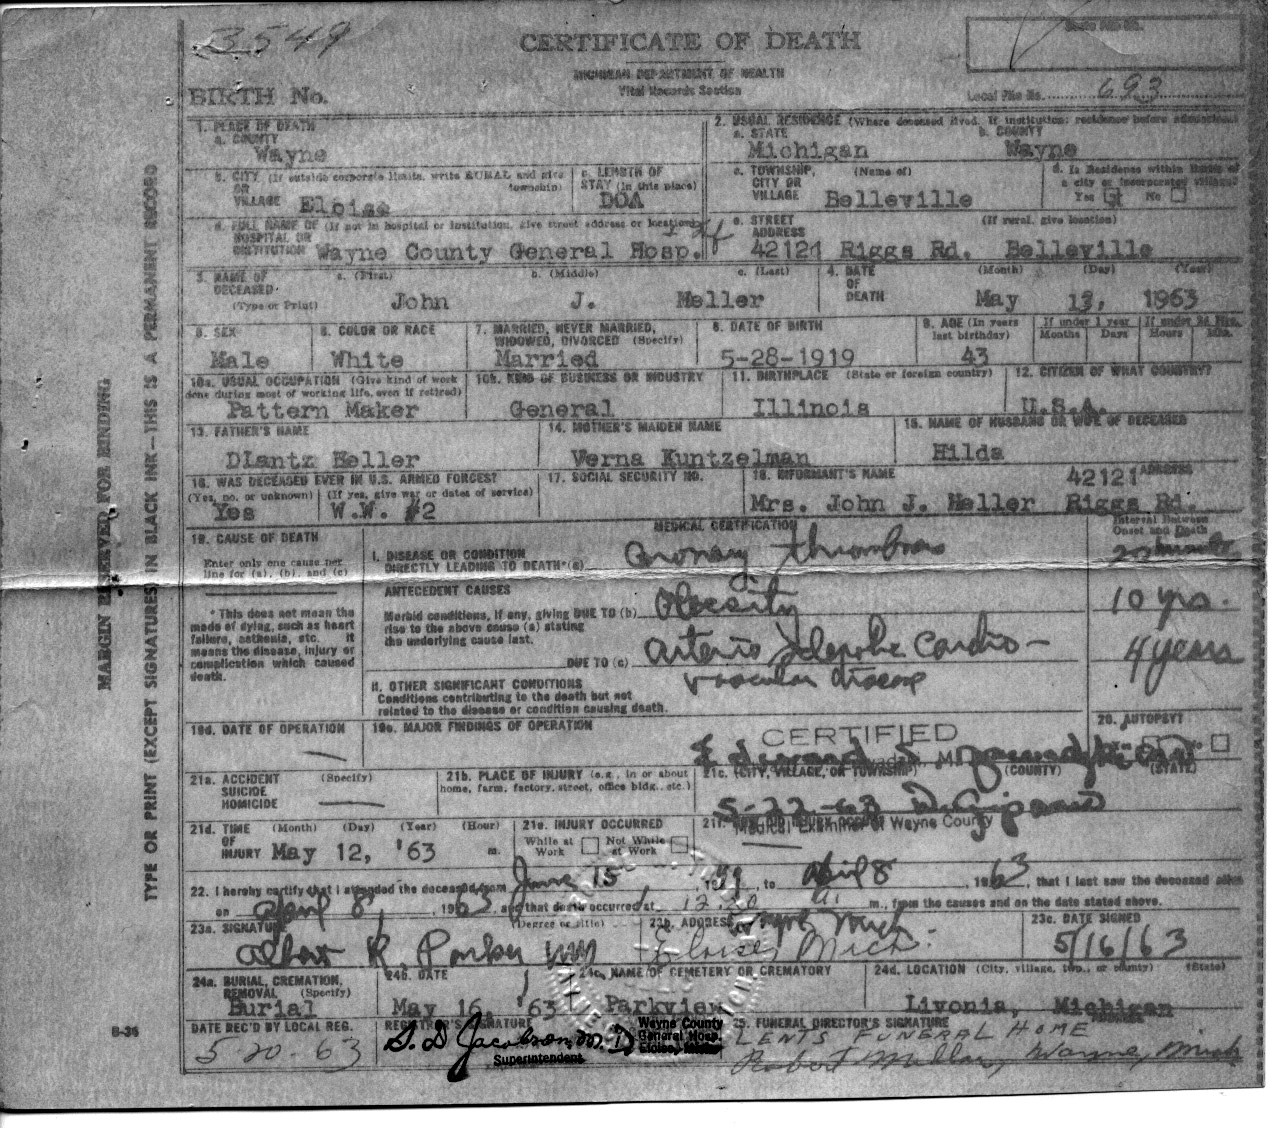 3549
CERTIFICATE OF DEATH
MICHIGAN DEPARTMENT OF HEALTH
Vital Records Section
BIRTH No.
Local File No. 693
1. PLACE OF DEATH
a. COUNTY
Wayne
2. USUAL RESIDENCE (Where deceased lived. If institution: residence before admission)
a. STATE b. COUNTY
Michigan Wayne
b. CITY (If outside corporate limits, write RURAL and give township)
OR
VILLAGE Eloise
c. LENGTH OF
STAY (in this place)
DOA
c. TOWNSHIP, (Name of)
CITY OR
VILLAGE Belleville
d. Is Residence within limits of
a city or incorporated village?
Yes No
d. FULL NAME OF (If not in hospital or institution, give street address or location)
HOSPITAL OR
INSTITUTION Wayne County General Hosp.
e. STREET (If rural, give location)
ADDRESS 42121 Riggs Rd. Belleville
3. NAME OF a. (First) b. (Middle) c. (Last)
DECEASED
(Type or Print) John J. Heller
4. DATE (Month) (Day) (Year)
OF
DEATH May 13, 1963
5. SEX
Male
6. COLOR OR RACE
White
7. MARRIED, NEVER MARRIED,
WIDOWED, DIVORCED (Specify)
Married
8. DATE OF BIRTH
5-28-1919
9. AGE (In years
last birthday)
43
If under 1 year
Months Days
If under 24 Hrs.
Hours Min.
10a. USUAL OCCUPATION (Give kind of work
done during most of working life, even if retired)
Pattern Maker
10b. KIND OF BUSINESS OR INDUSTRY
General
11. BIRTHPLACE (State or foreign country)
Illinois
12. CITIZEN OF WHAT COUNTRY?
U.S.A.
13. FATHER'S NAME
Diantz Heller
14. MOTHER'S MAIDEN NAME
Verna Kuntzelman
15. NAME OF HUSBAND OR WIFE OF DECEASED
Hilda
16. WAS DECEASED EVER IN U.S. ARMED FORCES?
(Yes, no, or unknown) (If yes, give war or dates of service)
Yes W.W. #2
17. SOCIAL SECURITY NO.
18. INFORMANT'S NAME ADDRESS
42121
Mrs. John J. Heller Riggs Rd.
MEDICAL CERTIFICATION
Interval Between
Onset and Death
19. CAUSE OF DEATH
Enter only one cause per
line for (a), (b), and (c)
* This does not mean the
mode of dying, such as heart
failure, asthenia, etc. It
means the disease, injury or
complication which caused
death.
I. DISEASE OR CONDITION
DIRECTLY LEADING TO DEATH*(a) Coronary thrombosis
ANTECEDENT CAUSES
Morbid conditions, if any, giving DUE TO (b) Obesity 10 yrs.
rise to the above cause (a) stating
the underlying cause last.
DUE TO (c) Arterio Sclerotic Cardio- 4 years
vascular disease
II. OTHER SIGNIFICANT CONDITIONS
Conditions contributing to the death but not
related to the disease or condition causing death.
19d. DATE OF OPERATION
19e. MAJOR FINDINGS OF OPERATION
CERTIFIED
20. AUTOPSY?
No
21a. ACCIDENT (Specify)
SUICIDE
HOMICIDE
21b. PLACE OF INJURY (e.g., in or about
home, farm, factory, street, office bldg., etc.)
21c. (CITY, VILLAGE, OR TOWNSHIP) (COUNTY) (STATE)
5-22-63
Medical Examiner of Wayne County
21d. TIME (Month) (Day) (Year) (Hour)
OF
INJURY May 12, '63 m.
21e. INJURY OCCURRED
While at Work Not While at Work
21f. HOW DID INJURY OCCUR?
22. I hereby certify that I attended the deceased from June 15, 1959, to April 8, 1963, that I last saw the deceased alive
on April 8, 1963, and that death occurred at 12:20 a. m., from the causes and on the date stated above.
23a. SIGNATURE (Degree or title)
Albert R. Parker MD
23b. ADDRESS
Wayne Mich
Eloise, Mich.
23c. DATE SIGNED
5/16/63
24a. BURIAL, CREMATION,
REMOVAL (Specify)
Burial
24b. DATE
May 16, '63
24c. NAME OF CEMETERY OR CREMATORY
Parkview
24d. LOCATION (City, village, twp., or county) (State)
Livonia, Michigan
DATE REC'D BY LOCAL REG.
5 20 63
REGISTRAR'S SIGNATURE
S. D. Jacobson, M.D.
Superintendent
Wayne County
General Hosp.
Eloise, Mich.
25. FUNERAL DIRECTOR'S SIGNATURE
LENTS FUNERAL HOME
Wayne, Mich
B-36
MARGIN RESERVED FOR BINDING
TYPE OR PRINT (EXCEPT SIGNATURES) IN BLACK INK—THIS IS A PERMANENT RECORD